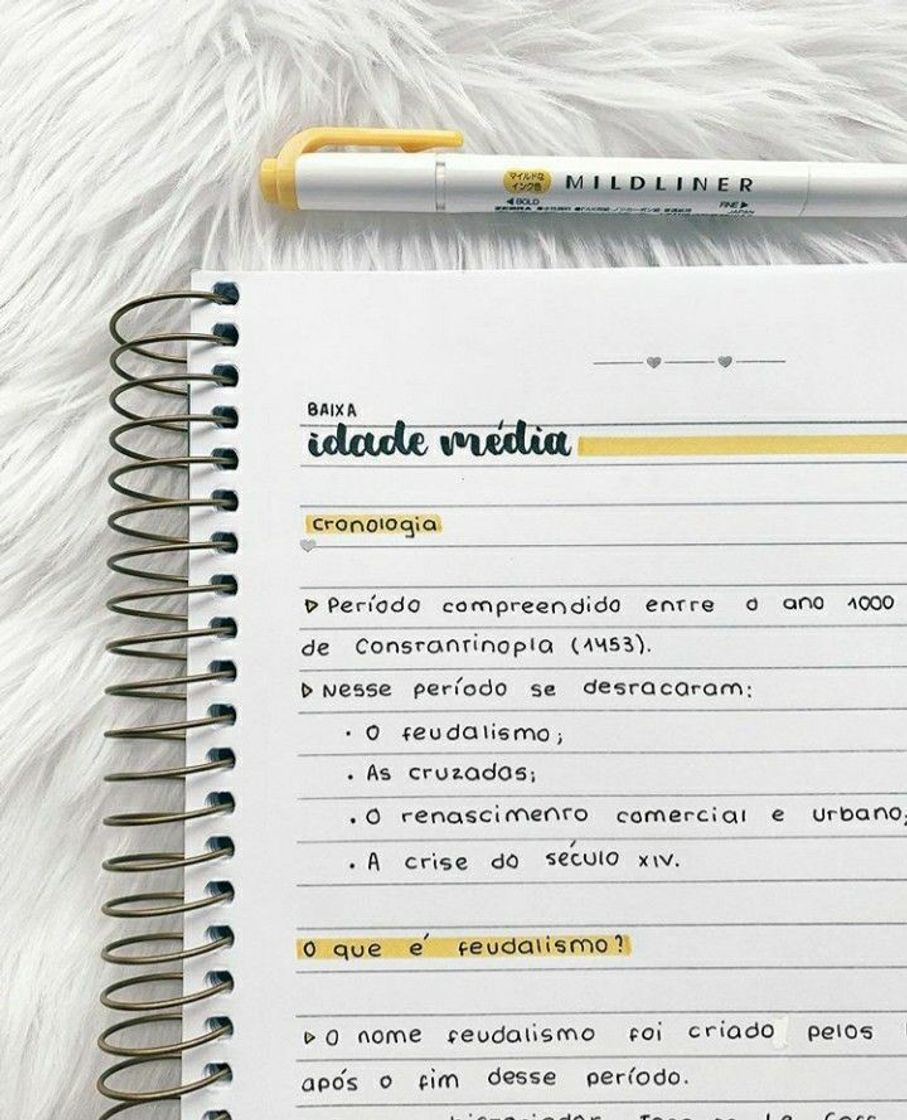 マイルドな
インク色
MILDLINER
◀BOLD
FINE▶
ZEBRA
JAPAN
BAIXA
idade média
cronologia
▷ Período compreendido entre o ano 1000
de Constantinopla (1453).
▷ Nesse período se destacaram:
• O feudalismo;
• As cruzadas;
• O renascimento comercial e urbano;
• A crise do século XIV.
O que é feudalismo?
▷ O nome feudalismo foi criado pelos
após o fim desse período.